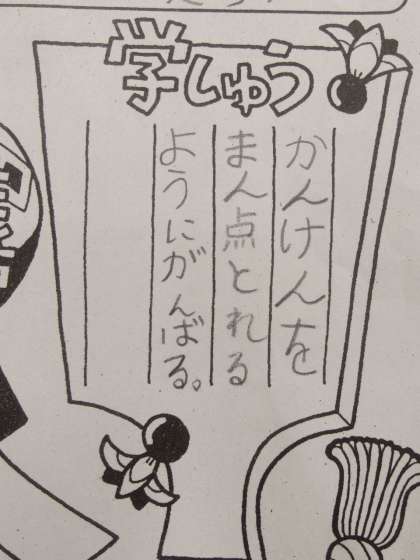 学しゅう
かんけんを
まん点とれる
ようにがんばる。